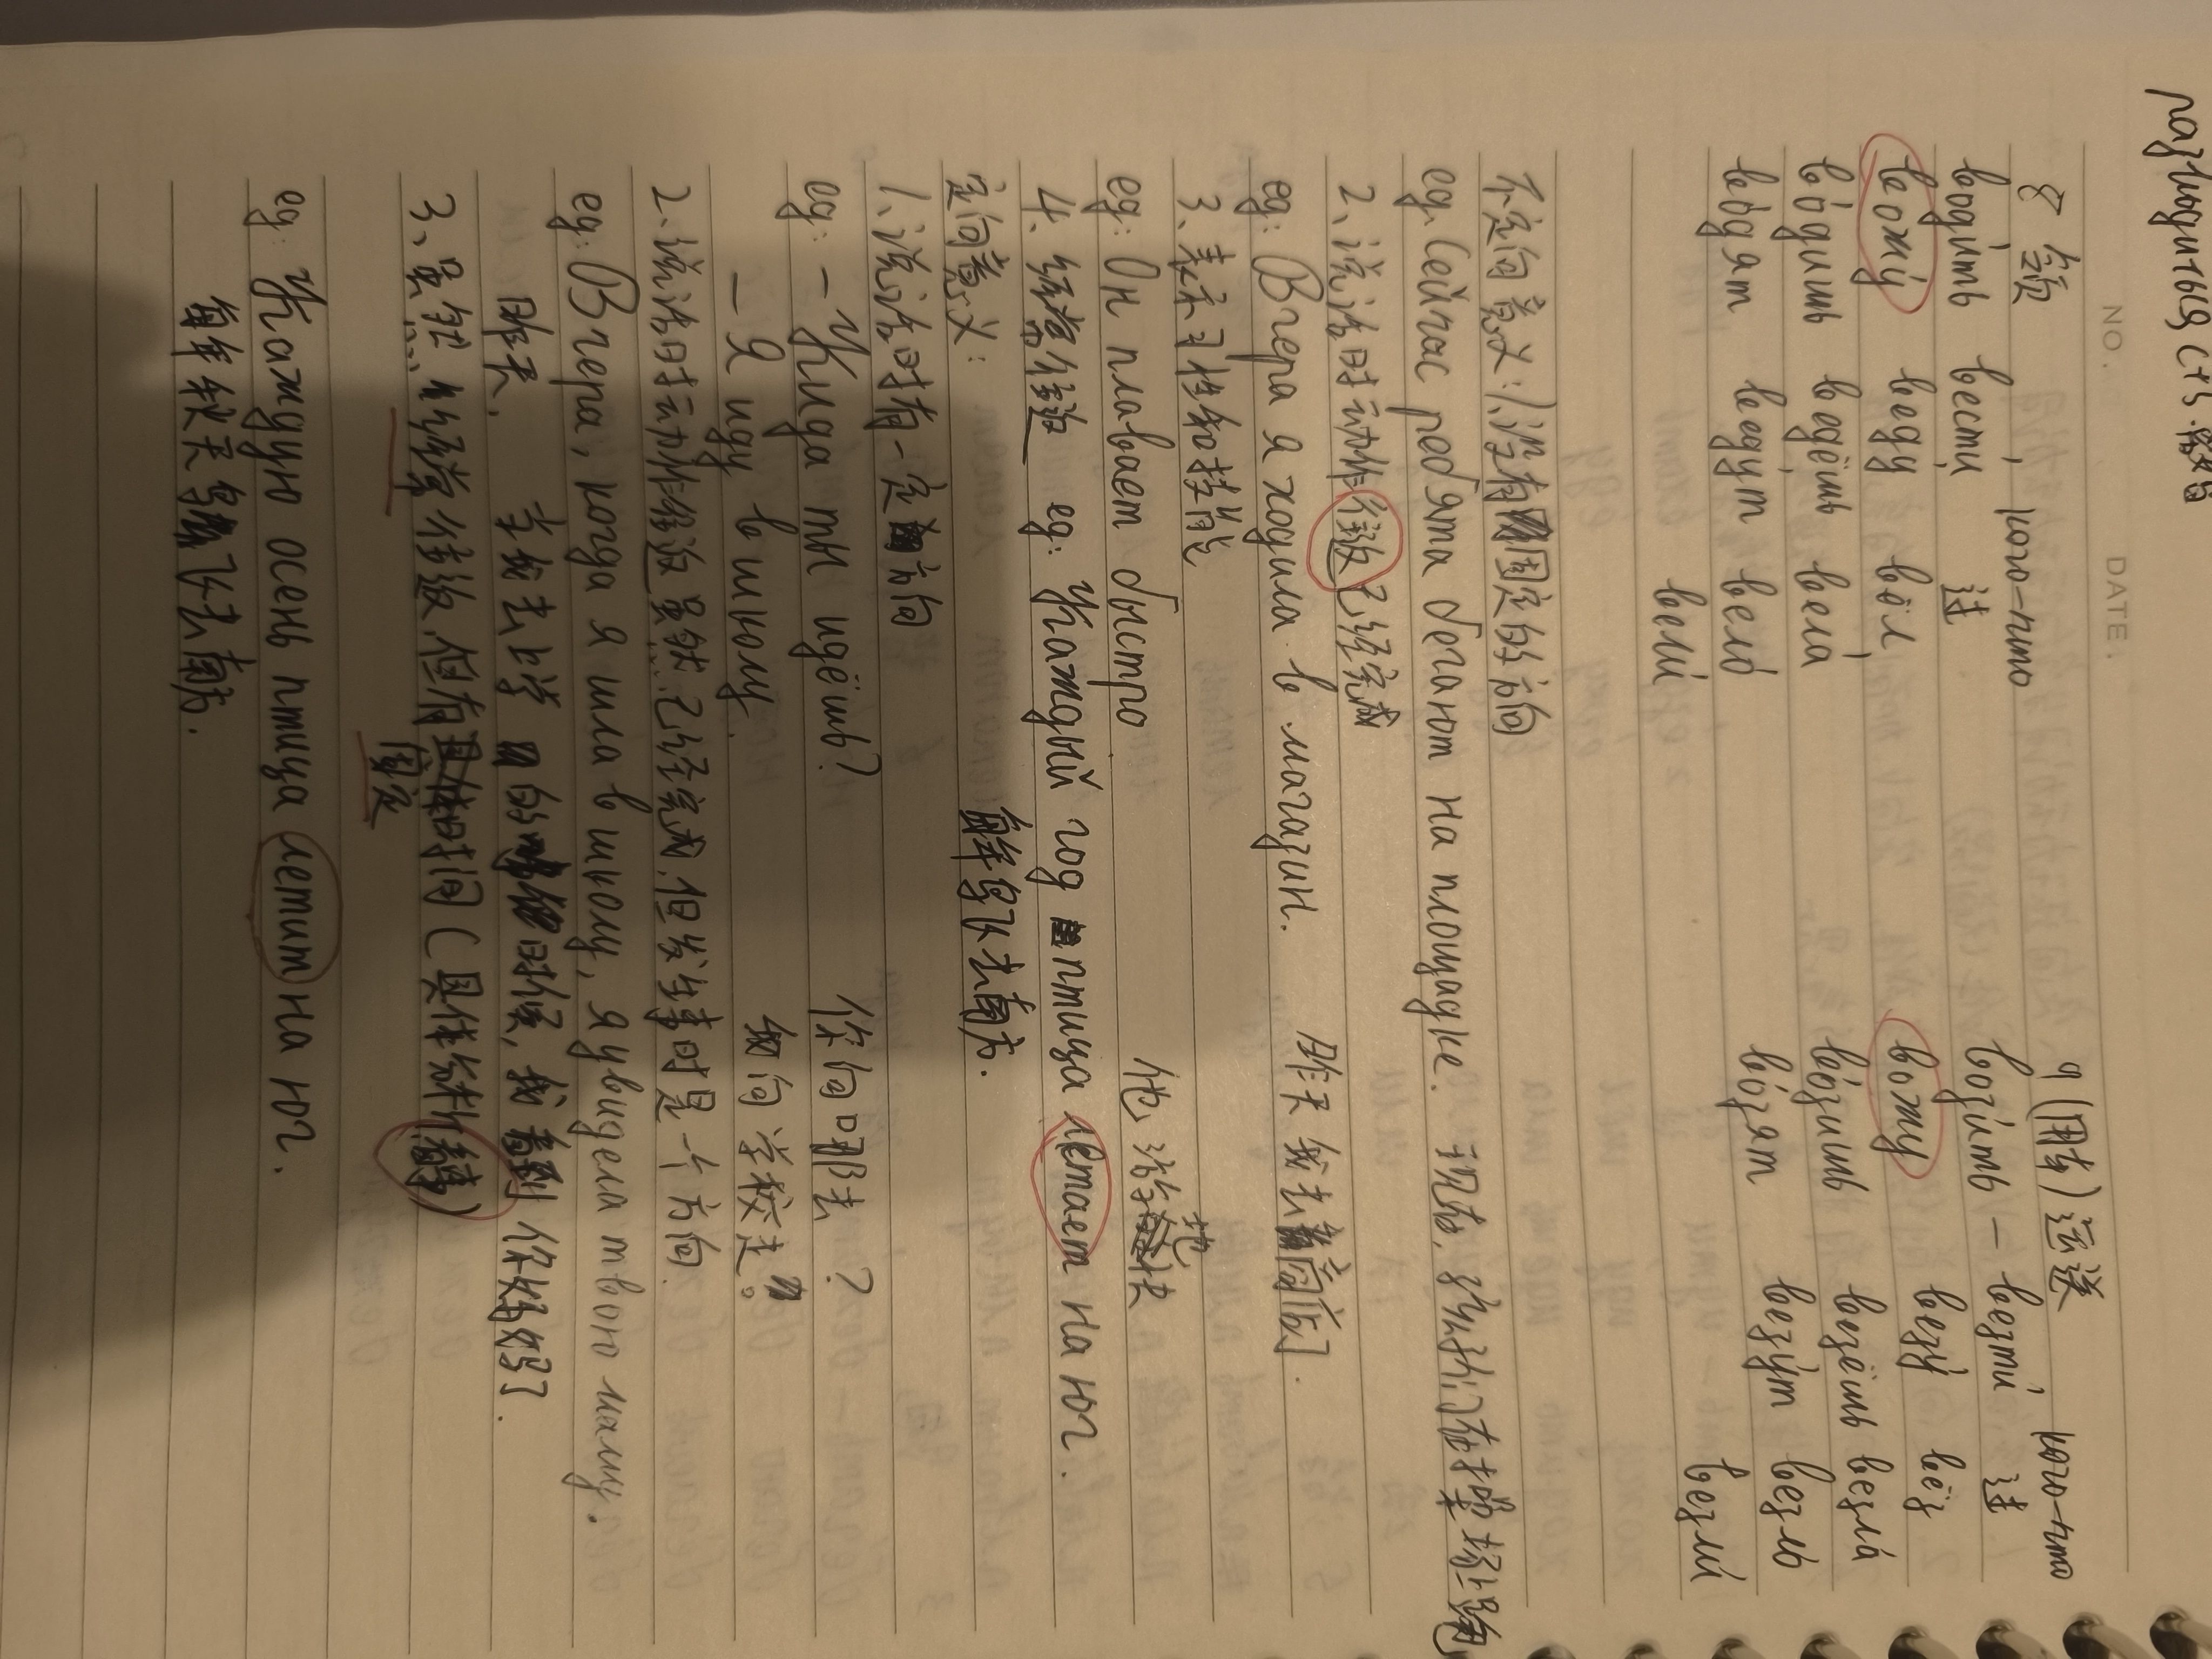 NO.
DATE.
8 领 кого-что 9 (用车) 运送 кого-что
води́ть вести́ 过 вози́ть — везти́ 过
вожу́ веду́ вёл вожу везу́ вёз
во́дишь ведёшь вела́ во́зишь везёшь везла́
во́дят ведут вело́ во́зят везу́т везло
вели́ везли́
不定向意义: 1. 没有固定的方向
eg. Сейчас ребята бегают на площадке. 现在, 孩子们在操场上跑
2、说话时动作往返已经完成
eg: Вчера я ходила в магазин. 昨天我去商店了.
3、表示习性和技能
eg: Он плавает быстро 他游地快
4. 经常往返 eg: Каждый год птица летает на юг.
每年鸟飞去南方.
定向意义:
1、说话时有一定方向
eg: — Куда ты идёшь? 你向哪去?
— Я иду в школу. 我向学校走。
2、说话时动作往返虽然已经完成, 但发生事时是一个方向.
eg: Вчера, когда я шла в школу, я увидела твою маму.
昨天, 当我去上学的时候, 我看到你妈妈了.
3、虽然.... 经常往返, 但有时间 (具体给料情)
固定
eg: Каждую осень птица летит на юг.
每年秋天鸟飞去南方.